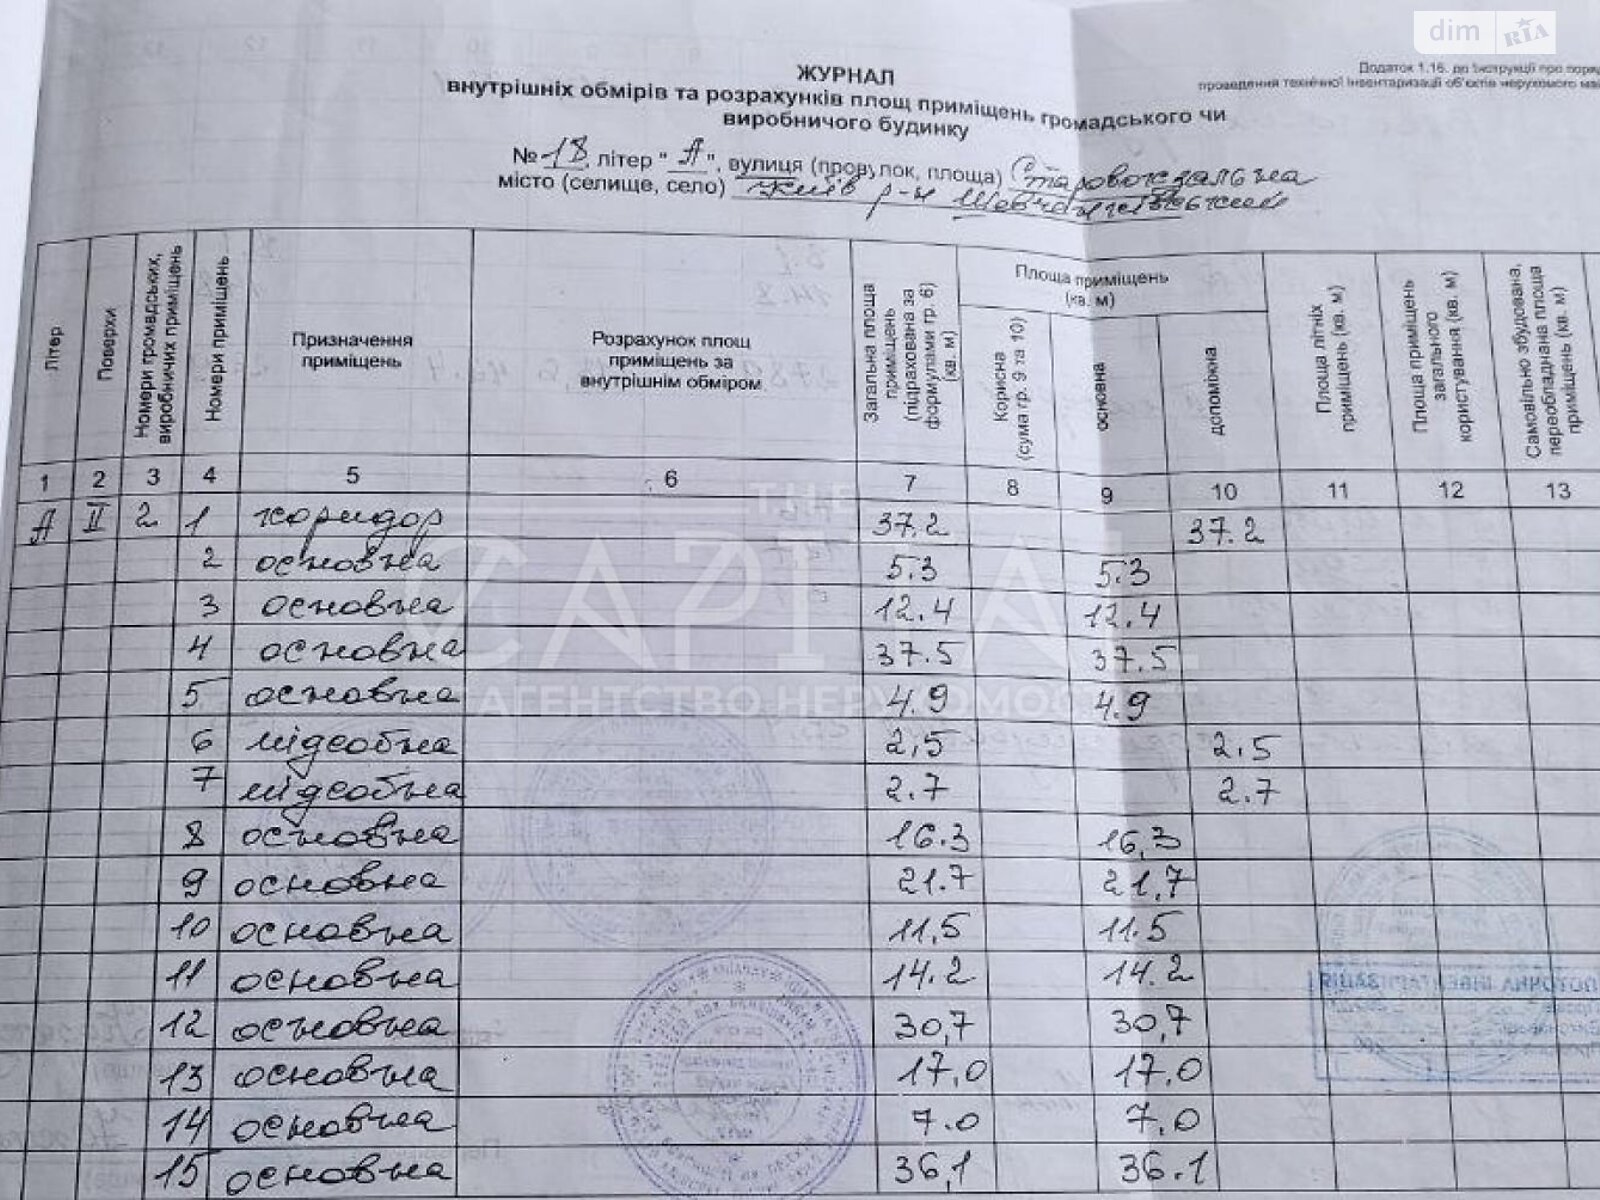 dim RIA
Додаток 1.16. до Інструкції про поряд
проведення технічної інвентаризації об'єктів нерухомого май
ЖУРНАЛ
внутрішніх обмірів та розрахунків площ приміщень громадського чи
виробничого будинку
№ 18, літер " А ", вулиця (провулок, площа) Старовокзальна
місто (селище, село) Київ р-н Шевченківський
Літер
Поверхи
Номери громадських, виробничих приміщень
Номери приміщень
Призначення приміщень
Розрахунок площ приміщень за внутрішнім обміром
Загальна площа приміщень (підрахована за формулами гр. 6) (кв. м)
Площа приміщень (кв. м)
Корисна (сума гр. 9 та 10)
основна
допоміжна
Площа літніх приміщень (кв. м)
Площа приміщень загального користування (кв. м)
Самовільно збудована, переобладнана площа приміщень (кв. м)
1 2 3 4 5 6 7 8 9 10 11 12 13
А II 2 1 коридор 37.2 37.2
2 основна 5.3 5.3
3 основна 12.4 12.4
4 основна 37.5 37.5
5 основна 4.9 4.9
6 підсобна 2,5 2.5
7 підсобна 2.7 2.7
8 основна 16.3 16,3
9 основна 21.7 21,7
10 основна 11,5 11.5
11 основна 14.2 14.2
12 основна 30,7 30,7
13 основна 17,0 17.0
14 основна 7.0 7,0
15 основна 36,1 36.1
THE
CAPITAL
АГЕНТСТВО НЕРУХОМОСТІ